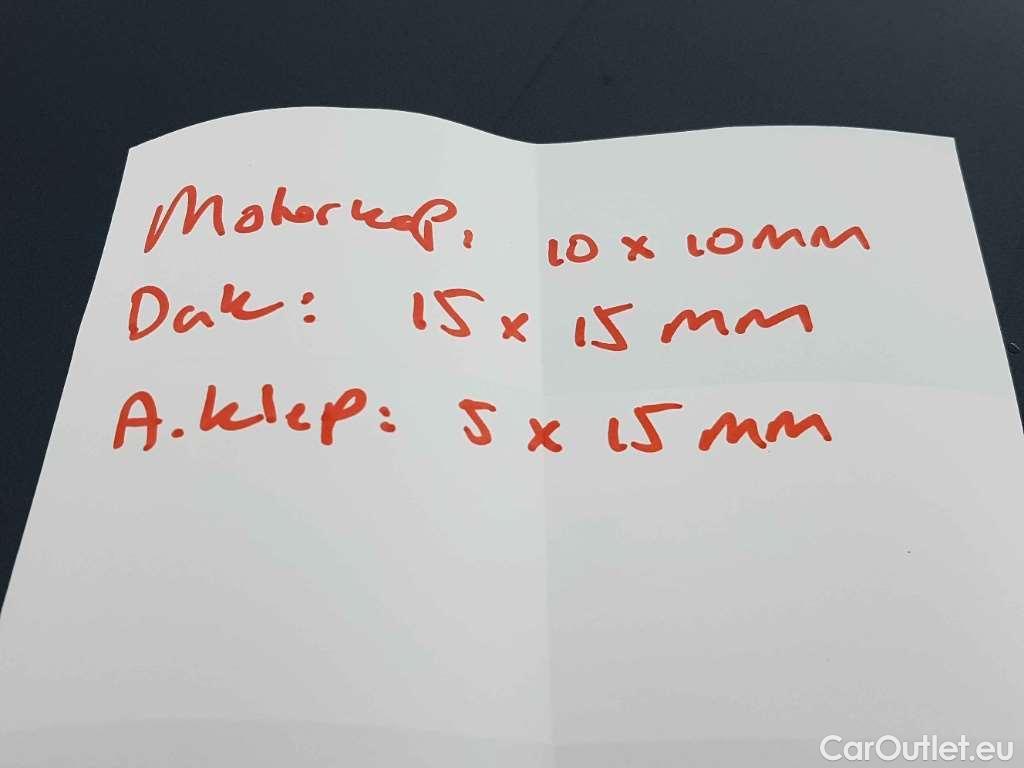 Motorkap: 10 x 10MM
Dak: 15 x 15 MM
A.klep: 5 x 15 MM
CarOutlet.eu